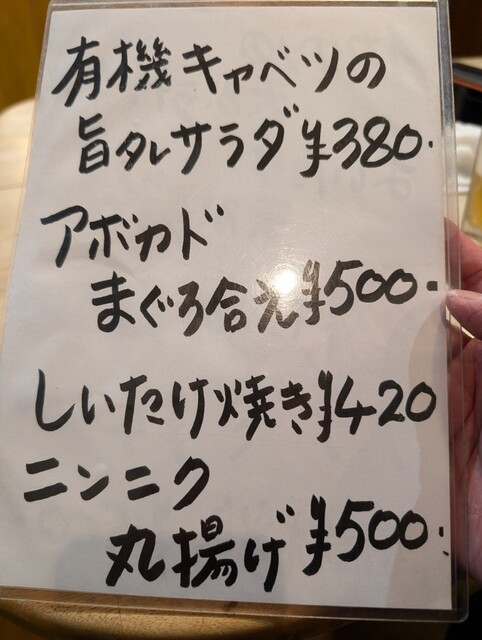 有機キャベツの
旨タレサラダ ¥380.
アボカド
まぐろ合え ¥500.
しいたけ焼き ¥420
ニンニク
丸揚げ ¥500.